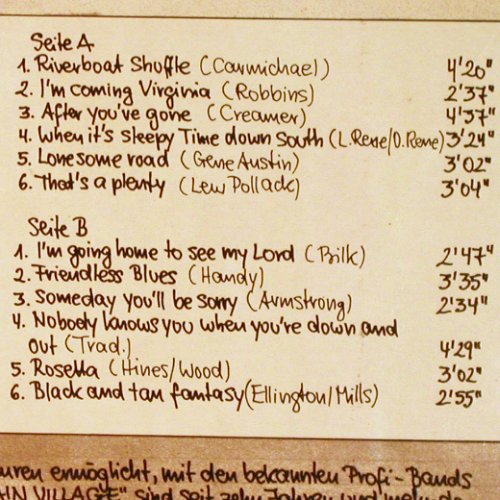 Seite A
1. Riverboat Shuffle (Carmichael) 4'20"
2. I'm coming Virginia (Robbins) 2'37"
3. After you've gone (Creamer) 4'37"
4. When it's Sleepy Time down South (L.Rene/O.Rene) 3'24"
5. Lonesome road (Gene Austin) 3'02"
6. That's a plenty (Lew Pollack) 3'04"
Seite B
1. I'm going home to see my Lord (Bilk) 2'47"
2. Friendless Blues (Handy) 3'35"
3. Someday you'll be sorry (Armstrong) 2'34"
4. Nobody knows you when you're down and
out (Trad.) 4'29"
5. Rosetta (Hines/Wood) 3'02"
6. Black and tan fantasy (Ellington/Mills) 2'55"
ermöglicht, mit den bekannten Profi-Bands
VILLAGE" sind seit zehn Jahren